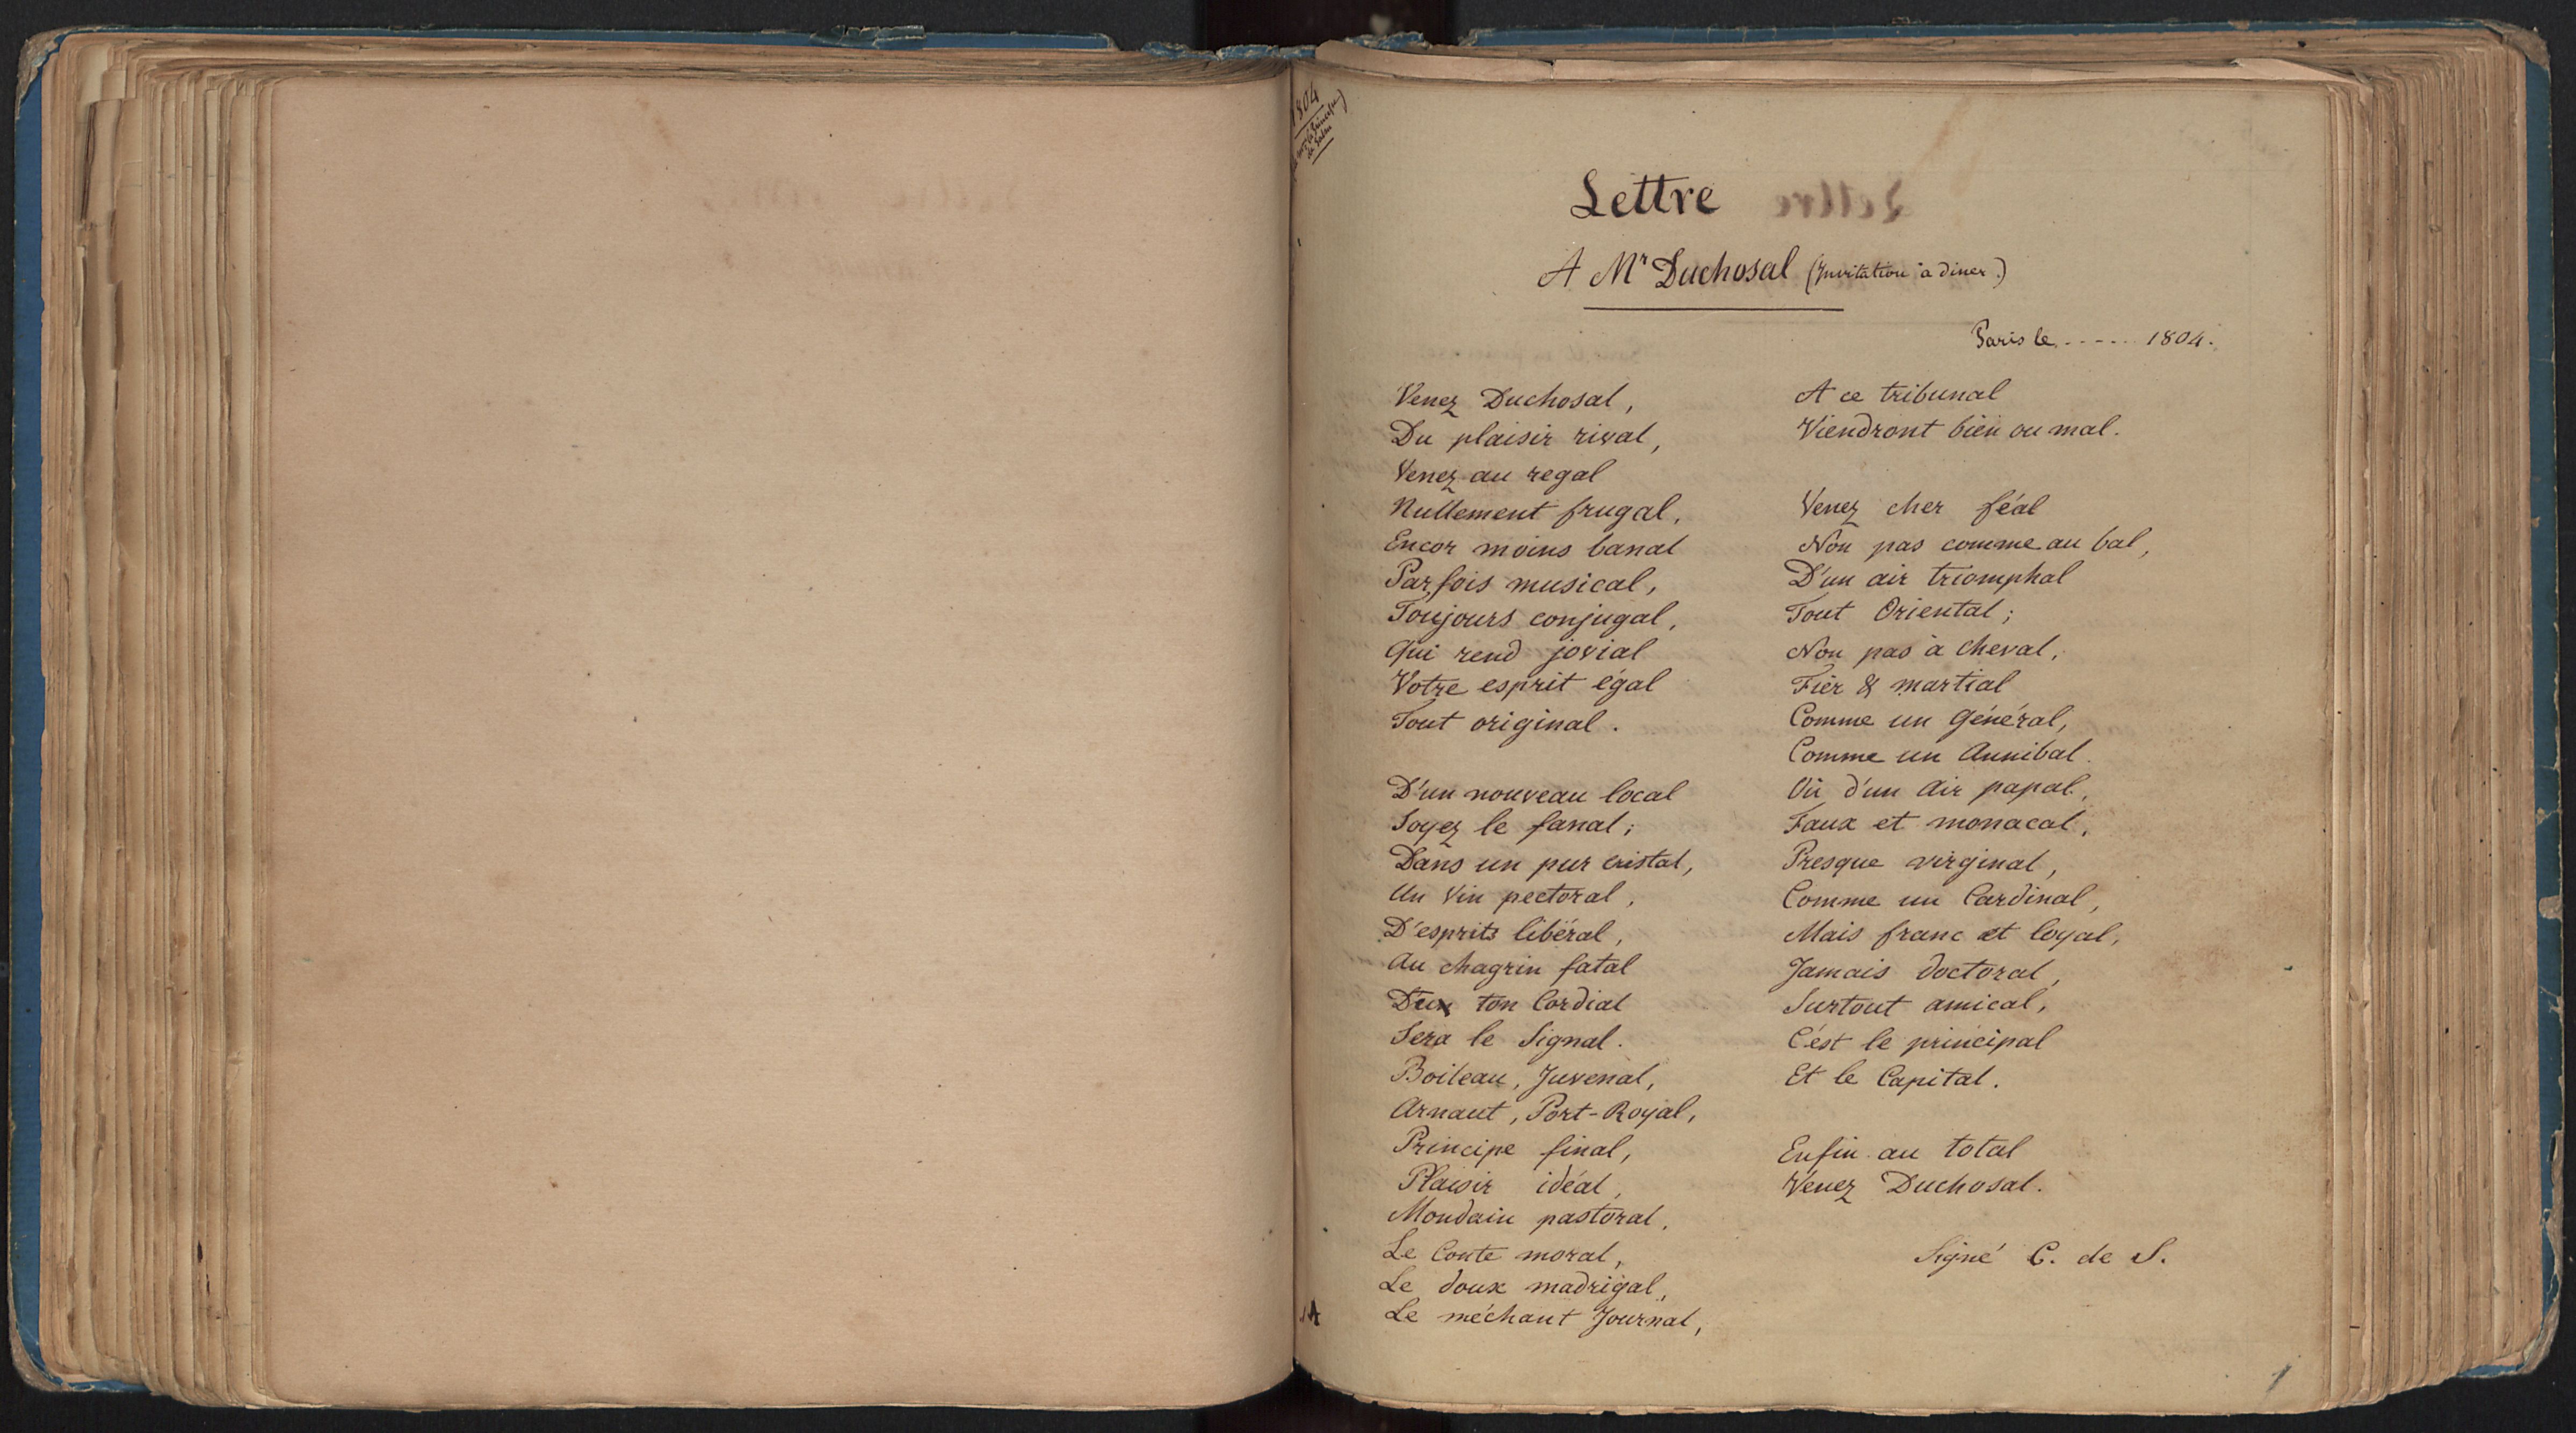 1804
Lettre
A Mr Duchosal (Invitation à diner.)
Paris le ------ 1804.
Venez Duchosal,
Du plaisir rival,
Venez au regal
Nullement frugal,
Encor moins banal
Parfois musical,
Toujours conjugal,
Qui rend jovial
Votre esprit égal
Tout original.
D'un nouveau local
Soyez le fanal;
Dans un pur cristal,
Un Vin pectoral,
D'esprits libéral,
Au chagrin fatal
D'un ton Cordial
Sera le Signal.
Boileau, Juvenal,
Arnaut, Port-Royal,
Principe final,
Plaisir idéal,
Mondain pastoral,
Le Conte moral,
Le doux madrigal,
Le méchant Journal,
A ce tribunal
Viendront bien ou mal.
Venez cher féal
Non pas comme au bal,
D'un air triomphal
Tout Oriental;
Non pas à cheval,
Fier & martial
Comme un Général,
Comme un Annibal.
Où d'un air papal,
Faux et monacal,
Presque virginal,
Comme un Cardinal,
Mais franc et loyal,
Jamais doctoral,
Surtout amical,
C'est le principal
Et le Capital.
Enfin au total
Venez Duchosal.
Signé C. de S.